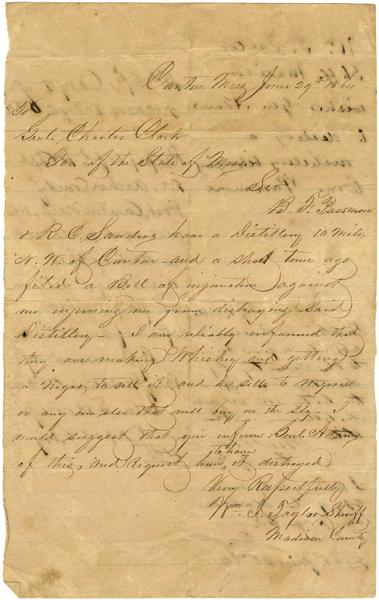 Canton Miss June 29th 1864
To
Genl. Charles Clark
Gov of the State of Miss
Sir
B. F. Passmore
& R. C. Sanding have a Distillery 10 Miles
N. W. of Canton and a short time ago
filed a Bill of injunction against
me injoining me from distroying said
Distillery - I am reliably informed that
they are making Whiskey and getting
a negro to sell it and he sells to negroes
or any one else that will buy on the sly. I
would suggest that you inform Genl.
of this, and Request him to have it distroyed
Very Respectfully
Wm. J. Taylor Sheriff
Madison County